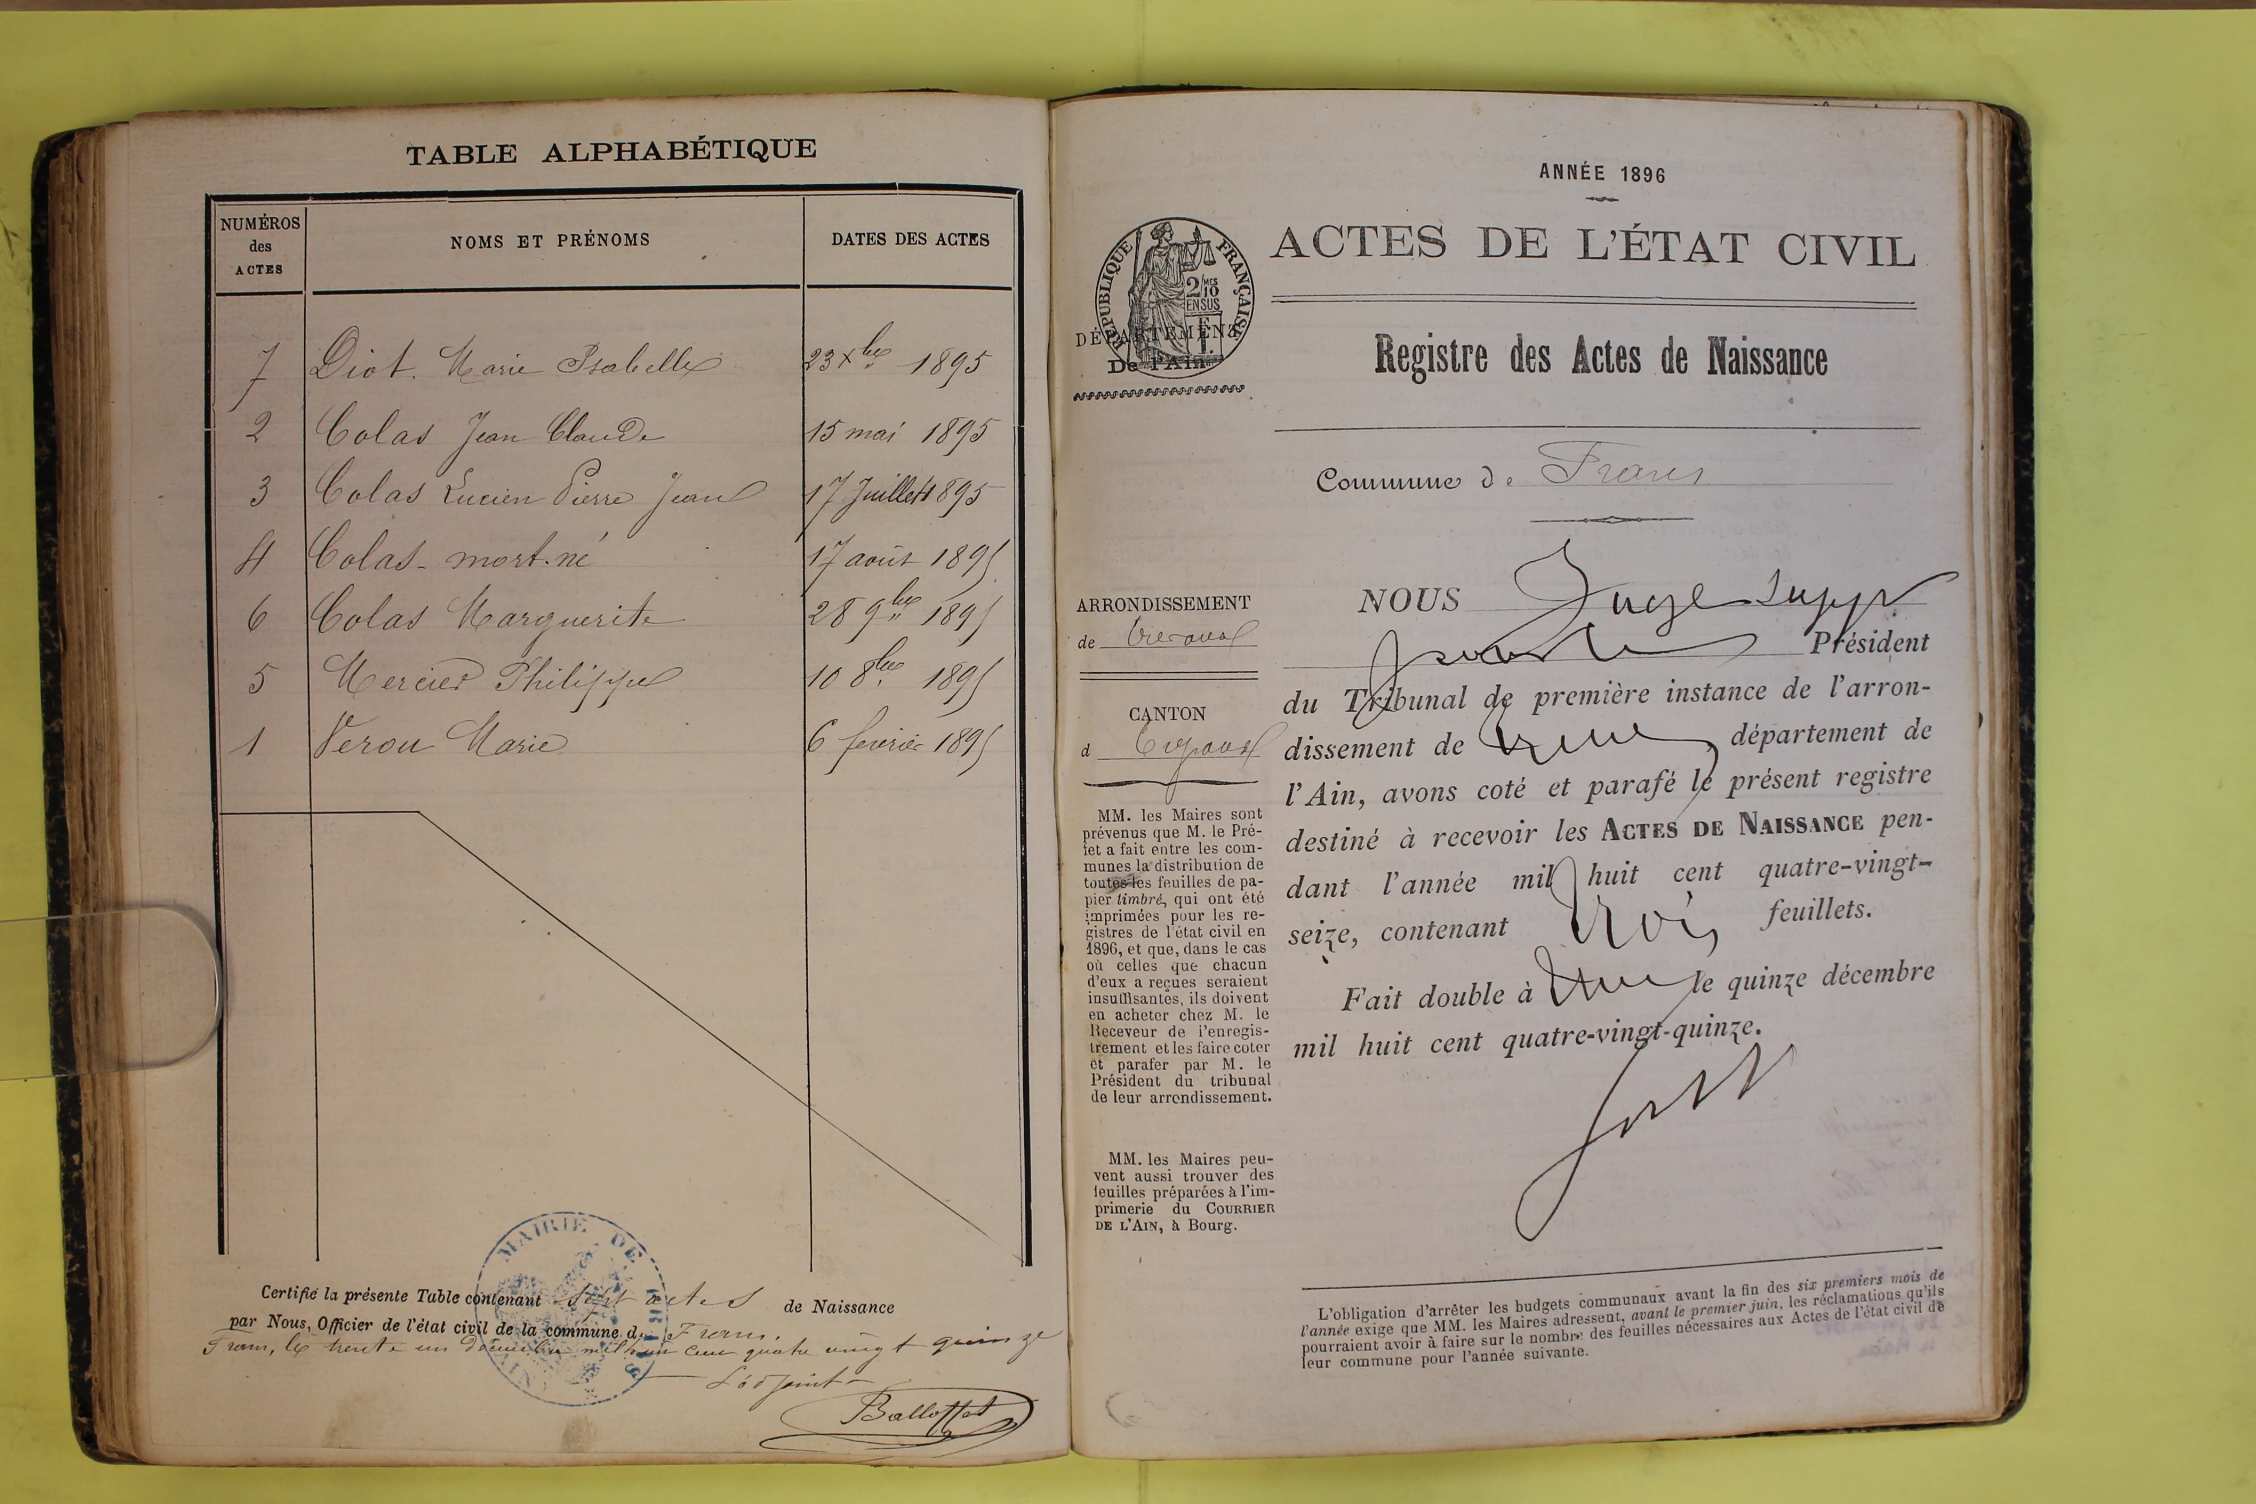 TABLE ALPHABÉTIQUE
NUMÉROS des ACTES
NOMS ET PRÉNOMS
DATES DES ACTES
7 Diot. Marie Isabelle 23 Xbre 1895
2 Colas Jean Claude 15 mai 1895
3 Colas Lucien Pierre Jean 17 Juillet 1895
4 Colas - mort-né 17 août 1895
6 Colas Marguerite 28 9bre 1895
5 Mercier Philippe 10 8bre 1895
1 Verou Marie 6 fevrier 1895
Certifié la présente Table contenant Sept actes de Naissance
par Nous, Officier de l'état civil de la commune de Frans.
Frans, le trente un décembre mil huit cent quatre vingt quinze
L'adjoint
Balloffet
MAIRIE DE FRANS
AIN
ANNÉE 1896
RÉPUBLIQUE FRANÇAISE
2/10MES
EN SUS
DÉPARTEMENT
De l'Ain
ACTES DE L'ÉTAT CIVIL
Registre des Actes de Naissance
Commune de Frans
ARRONDISSEMENT
de Trévoux
CANTON
d Trévoux
MM. les Maires sont
prévenus que M. le Pré-
fet a fait entre les com-
munes la distribution de
toutes les feuilles de pa-
pier timbré, qui ont été
imprimées pour les re-
gistres de l'état civil en
1896, et que, dans le cas
où celles que chacun
d'eux a reçues seraient
insuffisantes, ils doivent
en acheter chez M. le
Receveur de l'enregis-
trement et les faire coter
et parafer par M. le
Président du tribunal
de leur arrondissement.
MM. les Maires peu-
vent aussi trouver des
feuilles préparées à l'im-
primerie du COURRIER
DE L'AIN, à Bourg.
NOUS Juge supp
Président
du Tribunal de première instance de l'arron-
dissement de Trévoux département de
l'Ain, avons coté et parafé le présent registre
destiné à recevoir les ACTES DE NAISSANCE pen-
dant l'année mil huit cent quatre-vingt-
seize, contenant trois feuillets.
Fait double à Trévoux le quinze décembre
mil huit cent quatre-vingt-quinze.
L'obligation d'arrêter les budgets communaux avant la fin des six premiers mois de
l'année exige que MM. les Maires adressent, avant le premier juin, les réclamations qu'ils
pourraient avoir à faire sur le nombre des feuilles nécessaires aux Actes de l'état civil de
leur commune pour l'année suivante.